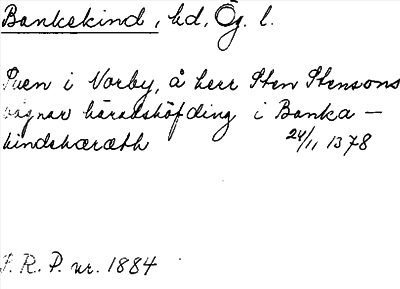 Bankekind, hd, Ög. l.
Sven i Norby, å herr Sten Stensons
vägnar häradshöfding i Banka-
kindshæræth 24/11 1378
S. R. P. nr. 1884